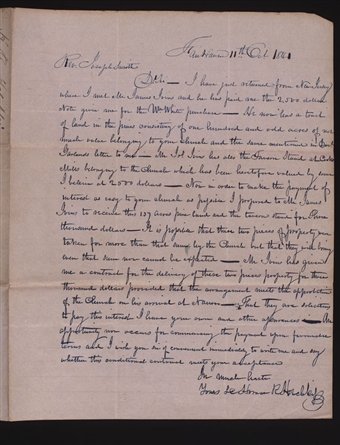 Fair Haven 11th Oct 1841
Rev. Joseph Smith
D Sir — I have just returned from New Jersey
where I met Mr James Ivins and he has paid me the 2500 dollars
Note given me for the White purchase — He now has a tract
of land in the pines consisting of one hundred and odd acres of not
much value belonging to your Church and the same mentioned in
letter to me — Mr Ivins has also the Tavern Stand at
Mills belonging to the Church which has been heretofore valued by some
I believe at 2500 dollars — Now in order to make the payment of
interest as easy to your Church as possible I proposed to Mr James
Ivins to receive this 127 acres pine land and the tavern stand for Three
thousand dollars — It is possible that these two pieces of property were
taken for more than that sum by the Church but that they will bring
even that sum now cannot be expected — Mr Ivins has given
me a contract for the delivery of these two pieces property for three
thousand dollars provided that the arrangement meets the approbation
of the Church on his arrival at Nauvoo — That they are solicitous
to pay this interest I have your own and other assurances — An
opportunity now occurs for commencing the payment upon favourable
terms and I wish you Sir if convenient immediately to write me and say
whether this conditional contract meets your acceptance
In much haste
Yours &c Horace R Hotchkiss